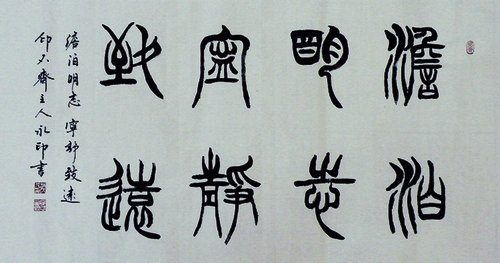 澹泊
明志
寧靜
致遠
澹泊明志 寧靜致遠
齋主人永印書